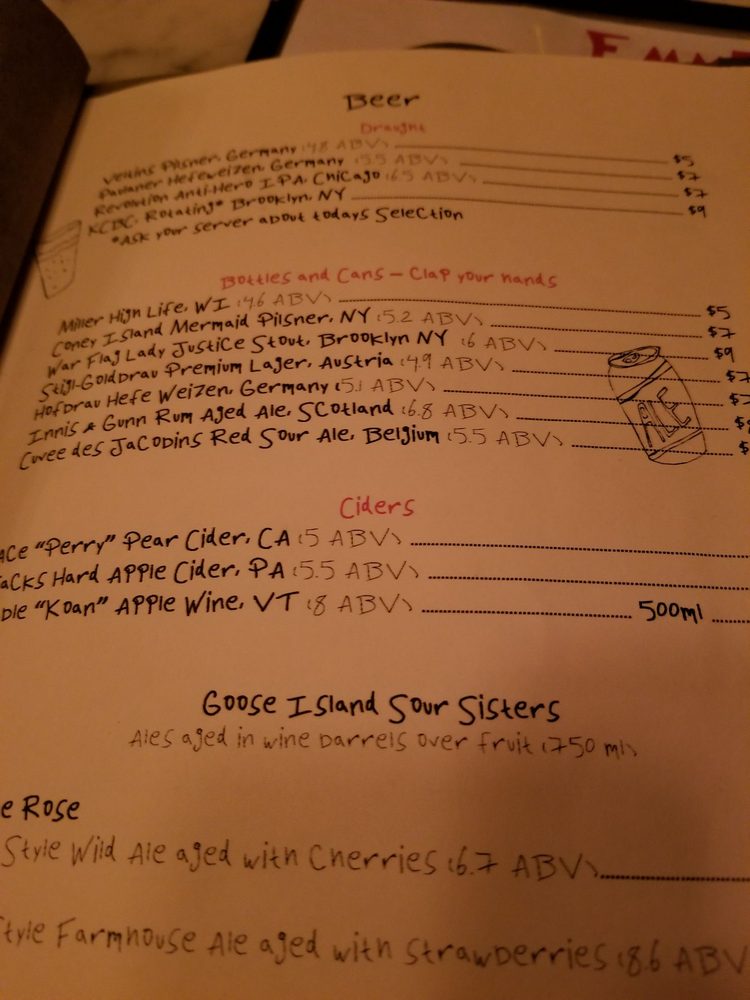 Beer
Draught
Veltins Pilsner, Germany (4.8 ABV) $5
Paulaner Hefeweizen, Germany (5.5 ABV) $7
Revolution Anti-Hero IPA, Chicago (6.5 ABV) $7
KCBC, Rotating* Brooklyn, NY $9
*Ask your server about todays selection
Bottles and Cans – Clap your hands
Miller High Life, WI (4.6 ABV) $5
Coney Island Mermaid Pilsner, NY (5.2 ABV) $7
War Flag Lady Justice Stout, Brooklyn NY (6 ABV) $9
Stigl-Goldbrau Premium Lager, Austria (4.9 ABV) $7
Hofbrau Hefe Weizen, Germany (5.1 ABV) $7
Innis & Gunn Rum Aged Ale, Scotland (6.8 ABV) $
Cuvee des Jacobins Red Sour Ale, Belgium (5.5 ABV) $
ALE
Ciders
ace "Perry" Pear Cider, CA (5 ABV)
acks Hard Apple Cider, PA (5.5 ABV)
ble "Koan" Apple Wine, VT (8 ABV) 500ml
Goose Island Sour Sisters
Ales aged in wine barrels over fruit (750 ml)
e Rose
Style Wild Ale aged with Cherries (6.7 ABV)
tyle Farmhouse Ale aged with strawberries (8.6 ABV